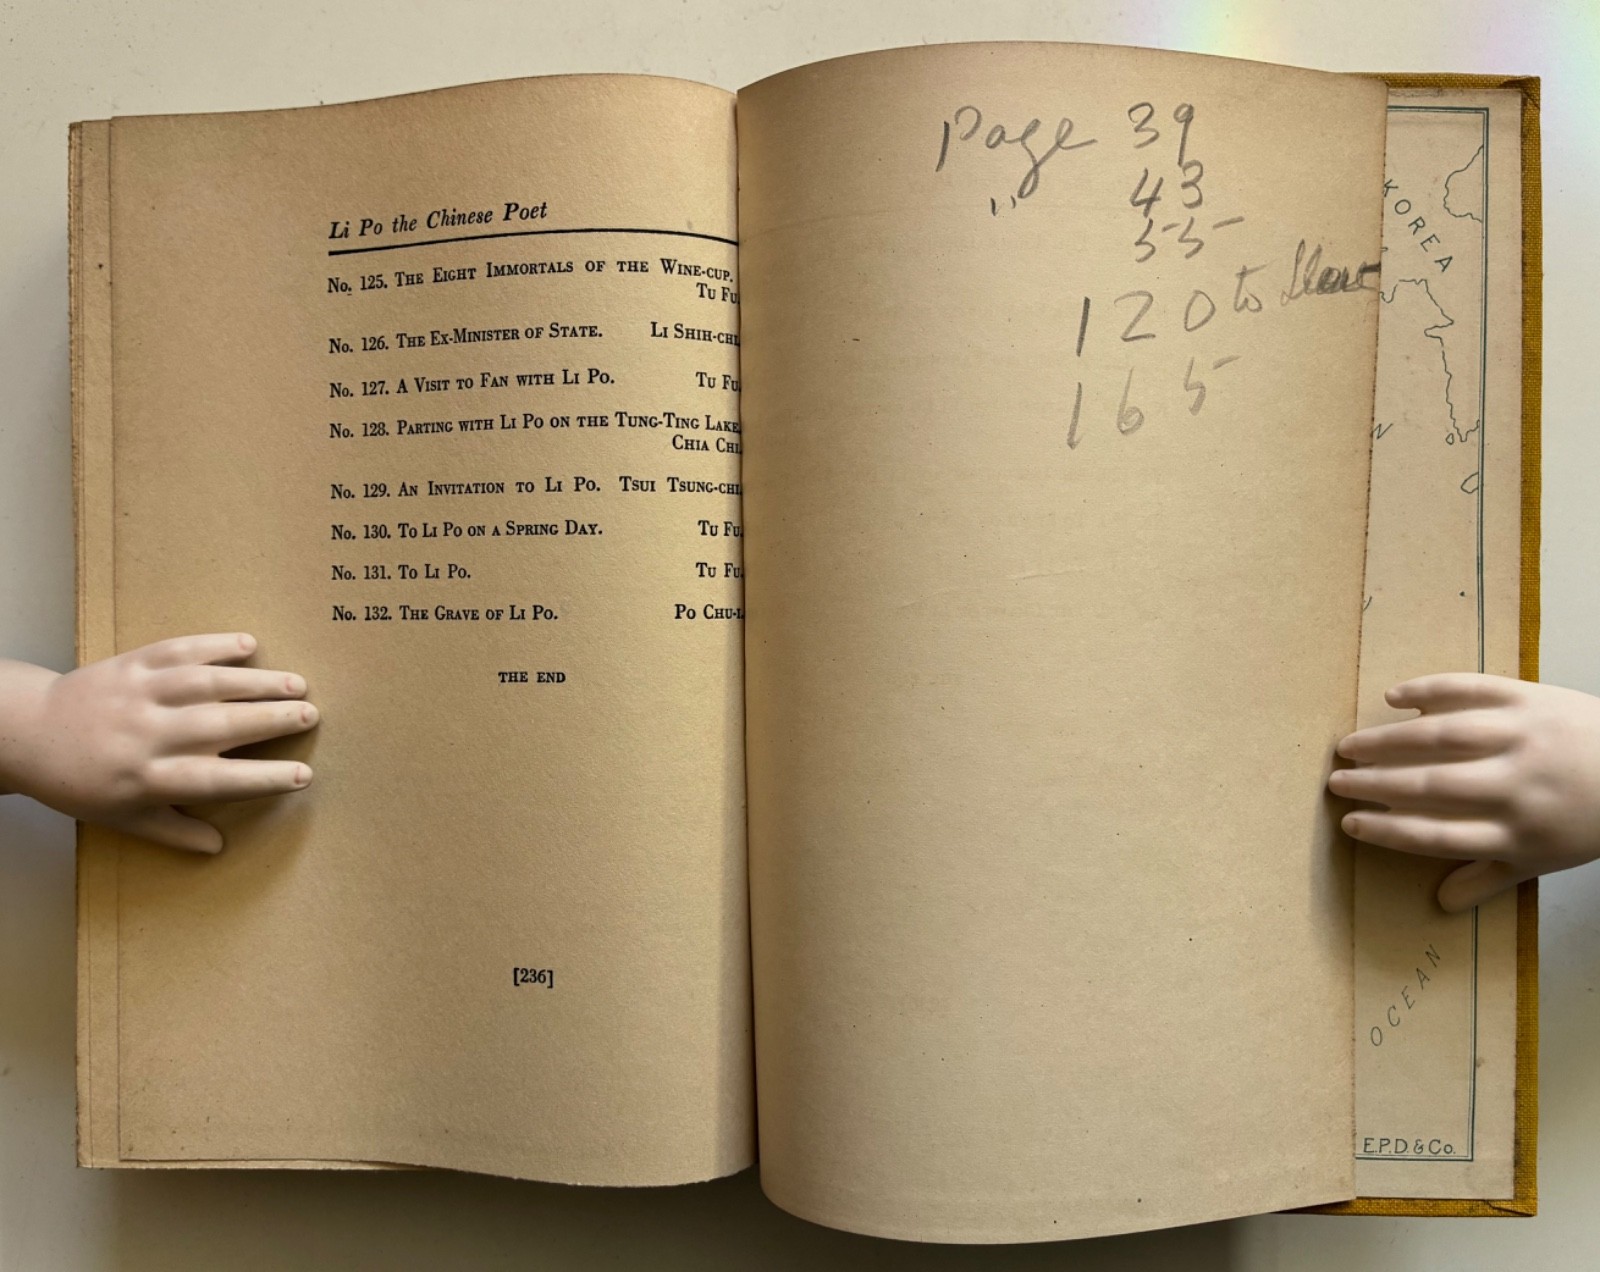 Li Po the Chinese Poet
No. 125. The Eight Immortals of the Wine-cup.
Tu Fu
No. 126. The Ex-Minister of State. Li Shih-chi
No. 127. A Visit to Fan with Li Po. Tu Fu
No. 128. Parting with Li Po on the Tung-Ting Lake
Chia Chi
No. 129. An Invitation to Li Po. Tsui Tsung-chi
No. 130. To Li Po on a Spring Day. Tu Fu.
No. 131. To Li Po. Tu Fu.
No. 132. The Grave of Li Po. Po Chu-i.
THE END
[236]
Page 39
" 43
55
120 to
165
KOREA
OCEAN
E.P.D. & Co.